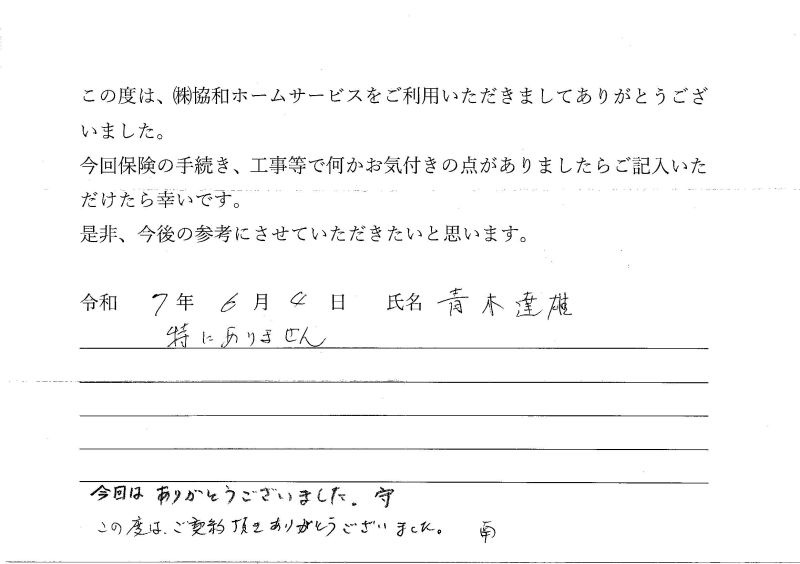 この度は、㈱協和ホームサービスをご利用いただきましてありがとうござ
いました。
今回保険の手続き、工事等で何かお気付きの点がありましたらご記入いた
だけたら幸いです。
是非、今後の参考にさせていただきたいと思います。
令和 7年 6月 4日 氏名 青木達雄
特にありません
今回は ありがとうございました。 守
この度は、ご契約頂きありがとうございました。 南